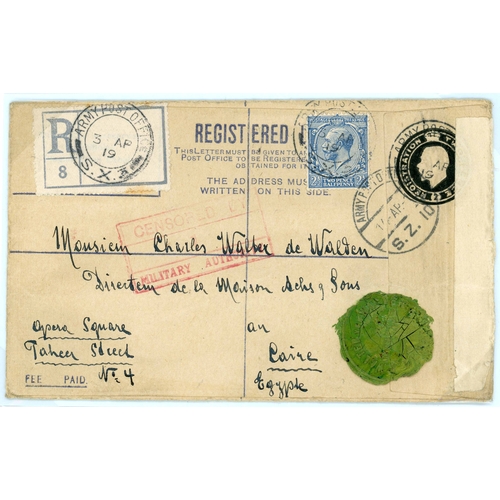 R
8
ARMY POST OFFICE
3 AP
19
S.X.
REGISTERED
THIS LETTER MUST BE GIVEN TO AN
POST OFFICE TO BE REGISTERED
OBTAINED FOR IT
THE ADDRESS MUST
WRITTEN ON THIS SIDE.
TWO PENCE
HALFPENNY
REGISTRATION
AP
19
ARMY FIELD
14 AP
S.Z. 10
CENSORED
MILITARY
Monsieur Charles Walter de Walden
Directeur de la Maison Achs & Sons
Opera Square
au
Taheer Street
Caire
No. 4
Egypte
FEE PAID.